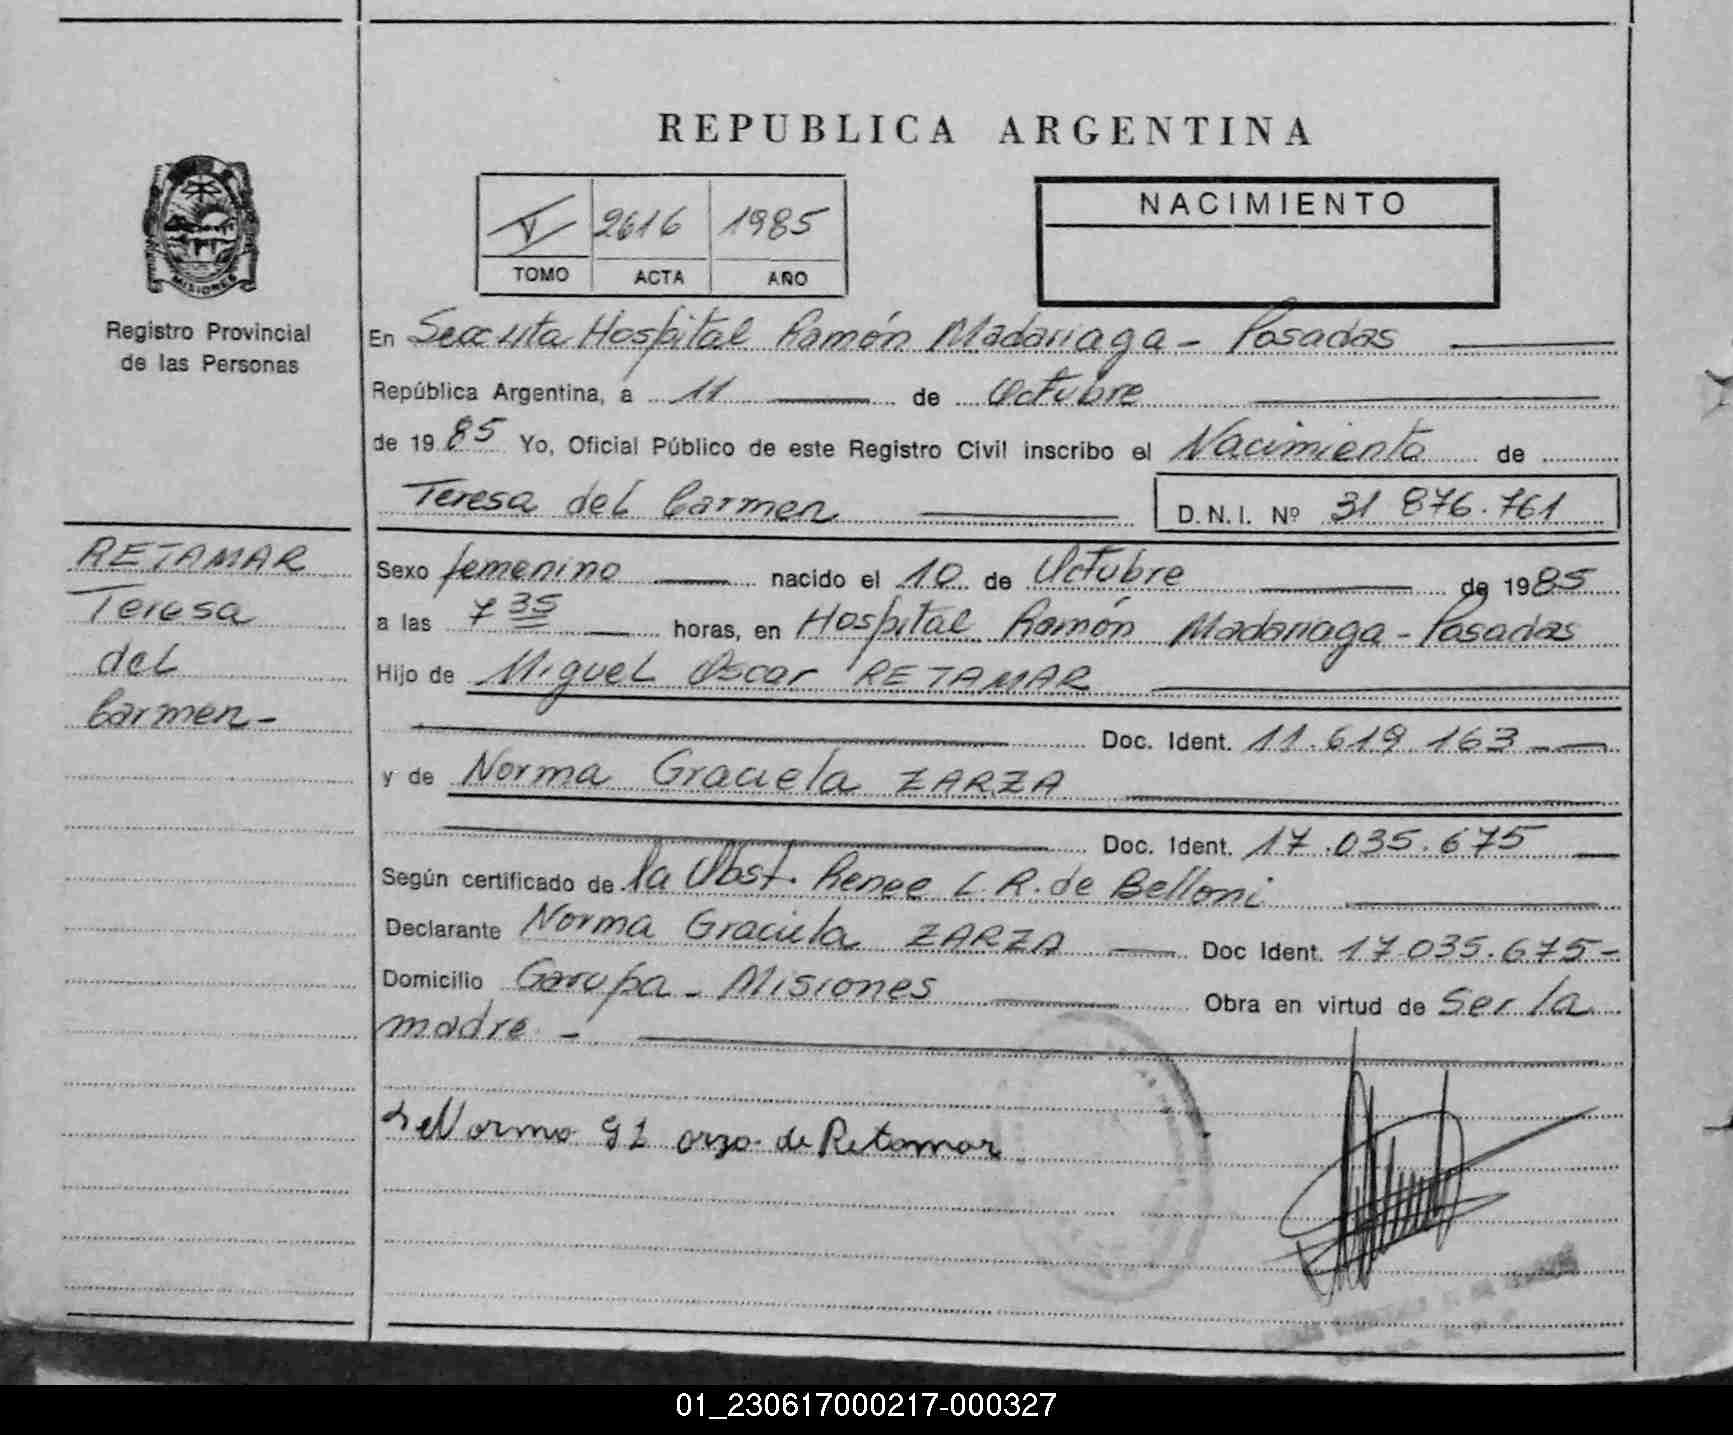 REPUBLICA ARGENTINA
MISIONES
Registro Provincial
de las Personas
V 2616 1985
TOMO ACTA AÑO
NACIMIENTO
En Hospital Ramón Madariaga - Posadas
República Argentina, a 11 de Octubre
de 1985 Yo, Oficial Público de este Registro Civil inscribo el Nacimiento de
Teresa del Carmen D.N.I. Nº 31 876.761
RETAMAR
Teresa
del
Carmen-
Sexo femenino nacido el 10 de Octubre de 1985
a las 7 35 horas, en Hospital Ramón Madariaga - Posadas
Hijo de Miguel Oscar RETAMAR
Doc. Ident. 11.619.163
y de Norma Graciela ZARZA
Doc. Ident. 17.035.675
Según certificado de la Obst. Renee L. R. de Belloni
Declarante Norma Graciela ZARZA Doc Ident. 17.035.675-
Domicilio Garupa - Misiones Obra en virtud de Ser la
madre -
Norma G Zarza de Retamar
01_230617000217-000327